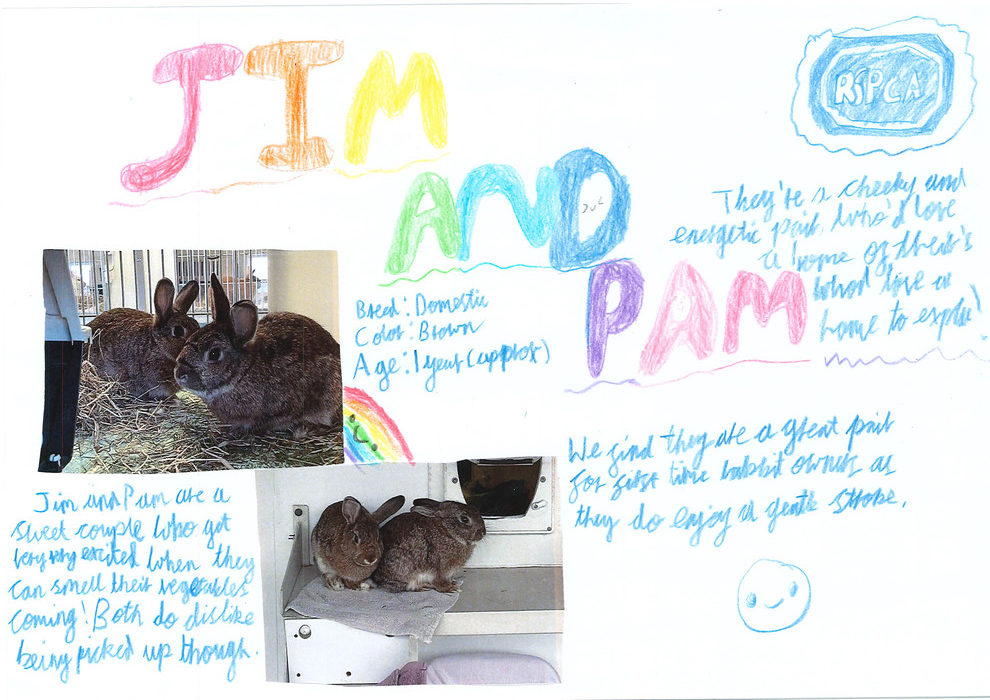 JIM
AND
PAM
RSPCA
They're a cheeky and
energetic pair, who'd love
a home of their's
who'd love a
home to explore!
Breed: Domestic
Color: Brown
Age: 1 year (approx)
Jim and Pam are a
sweet couple who get
very very excited when they
can smell their vegetables
coming! Both do dislike
being picked up though.
We find they are a great pair
for first time rabbit owners as
they do enjoy a gentle stroke.